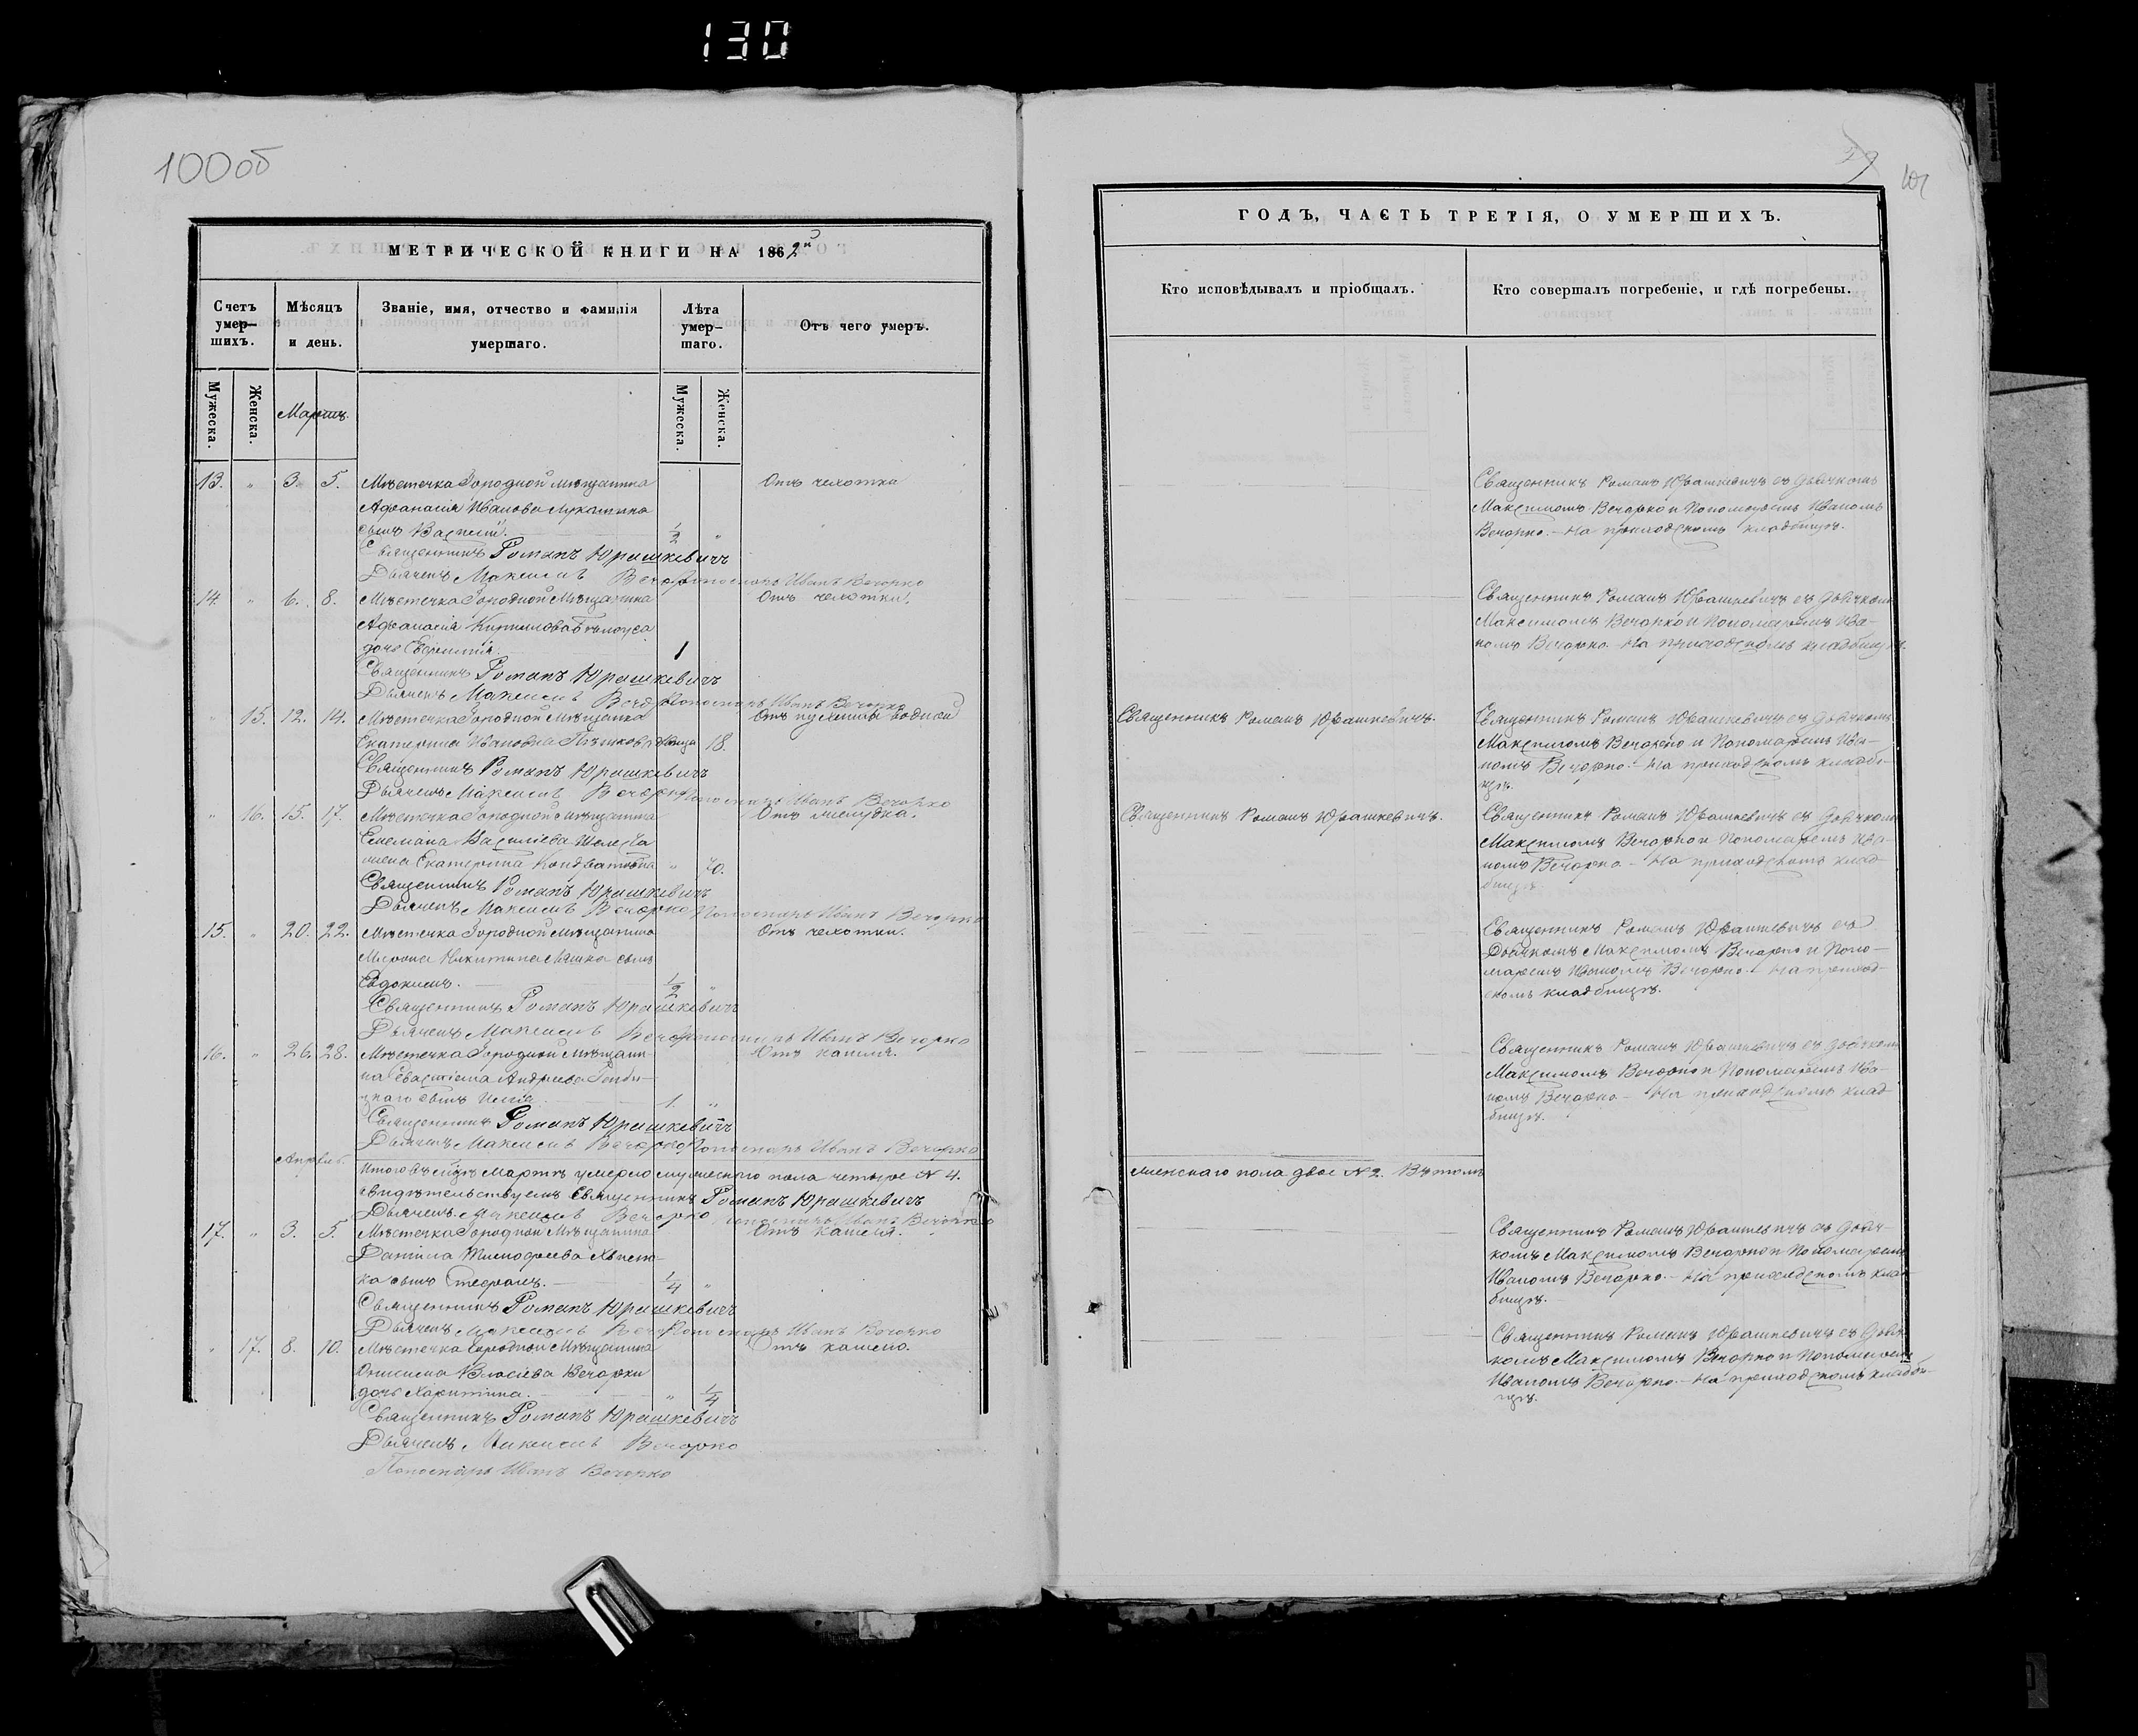 130
100об
МЕТРИЧЕСКОЙ КНИГИ НА 1862й
Счетъ умер–шихъ.
Мѣсяцъ и день.
Званіе, имя, отчество и фамилія умершаго.
Лѣта умер–шаго.
Отъ чего умеръ.
Мужеска.
Женска.
Мартъ.
Мужеска.
Женска.
13. „ 3. 5. Мѣстечка Городной Мѣщанина Отъ чехотки
Афанасія Иванова
сынъ Василій. 1/2 „
Священникъ Романъ Юрашкевичъ
Дьячекъ Максимъ Вечорко Пономарь Иванъ Вечорко
14. „ 6. 8. Мѣстечка Городной Мѣщанина Отъ чехотки.
Афанасія Кирилова
дочь 1
Священникъ Романъ Юрашкевичъ
Дьячекъ Максимъ Вечорко Пономарь Иванъ Вечорко
„ 15. 12. 14. Мѣстечка Городной Мѣщанка Отъ водной
Екатерина Иванова 18.
Священникъ Романъ Юрашкевичъ
Дьячекъ Максимъ Вечорко Пономарь Иванъ Вечорко
„ 16. 15. 17. Мѣстечка Городной Мѣщанина Отъ желудка.
Емеліана Василіева
жена Екатерина Кондратова „ 70.
Священникъ Романъ Юрашкевичъ
Дьячекъ Максимъ Вечорко Пономарь Иванъ Вечорко
15. „ 20. 22. Мѣстечка Городной Мѣщанина Отъ чехотки.
Мирона Никитина Ляшка сынъ
Евдокимъ. 1/2 „
Священникъ Романъ Юрашкевичъ
Дьячекъ Максимъ Вечорко Пономарь Иванъ Вечорко
16. „ 26. 28. Мѣстечка Городной Мѣщани– Отъ кашля.
на Севастіана Андреева
сынъ Илія 1. „
Священникъ Романъ Юрашкевичъ
Дьячекъ Максимъ Вечорко Пономарь Иванъ Вечорко
Апрѣль.
Итого въ Мартѣ умерло мужескаго пола четыре N 4.
свидѣтельствуемъ Священникъ Романъ Юрашкевичъ
Дьячекъ Максимъ Вечорко Пономарь Иванъ Вечорко
17. „ 3. 5. Мѣстечка Городной Мѣщанина Отъ кашля.
Даніила
сынъ Стефанъ. 1/4 „
Священникъ Романъ Юрашкевичъ
Дьячекъ Максимъ Вечорко Пономарь Иванъ Вечорко
„ 17. 8. 10. Мѣстечка Городной Мѣщанина Отъ кашлю.
Онисима Власіева Вечорки
дочь Харитина. „ 1/4
Священникъ Романъ Юрашкевичъ
Дьячекъ Максимъ Вечорко
Пономарь Иванъ Вечорко
ГОДЪ, ЧАСТЬ ТРЕТІЯ, О УМЕРШИХЪ.
Кто исповѣдывалъ и пріобщалъ.
Кто совершалъ погребеніе, и гдѣ погребены.
Священникъ Романъ Юрашкевичъ съ дьячкомъ
Максимомъ Вечорко и Пономаремъ Иваномъ
Вечорко. – На приходскомъ кладбищѣ.
Священникъ Романъ Юрашкевичъ съ дьячкомъ
Максимомъ Вечорко и Пономаремъ Ива–
номъ Вечорко. На приходскомъ кладбищѣ.
Священникъ Романъ Юрашкевичъ.
Священникъ Романъ Юрашкевичъ съ дьячкомъ
Максимомъ Вечорко и Пономаремъ Ива–
номъ Вечорко. – На приходскомъ кладби–
щѣ.
Священникъ Романъ Юрашкевичъ.
Священникъ Романъ Юрашкевичъ съ дьячкомъ
Максимомъ Вечорко и Пономаремъ Ива–
номъ Вечорко. – На приходскомъ клад–
бищѣ.
Священникъ Романъ Юрашкевичъ съ
Дьячкомъ Максимомъ Вечорко и Поно–
маремъ Иваномъ Вечорко. – На приход–
скомъ кладбищѣ.
Священникъ Романъ Юрашкевичъ съ дьячкомъ
Максимомъ Вечорко и Пономаремъ Ива–
номъ Вечорко – На приходскомъ клад
бищѣ.
женскаго пола двое N 2. Въ томъ
Священникъ Романъ Юрашкевичъ съ дьяч–
комъ Максимомъ Вечорко и Пономаремъ
Иваномъ Вечорко. – На приходскомъ клад
бищѣ.
Священникъ Романъ Юрашкевичъ съ дьяч
комъ Максимомъ Вечорко и Пономаремъ
Иваномъ Вечорко. – На приходскомъ кладби–
щѣ.